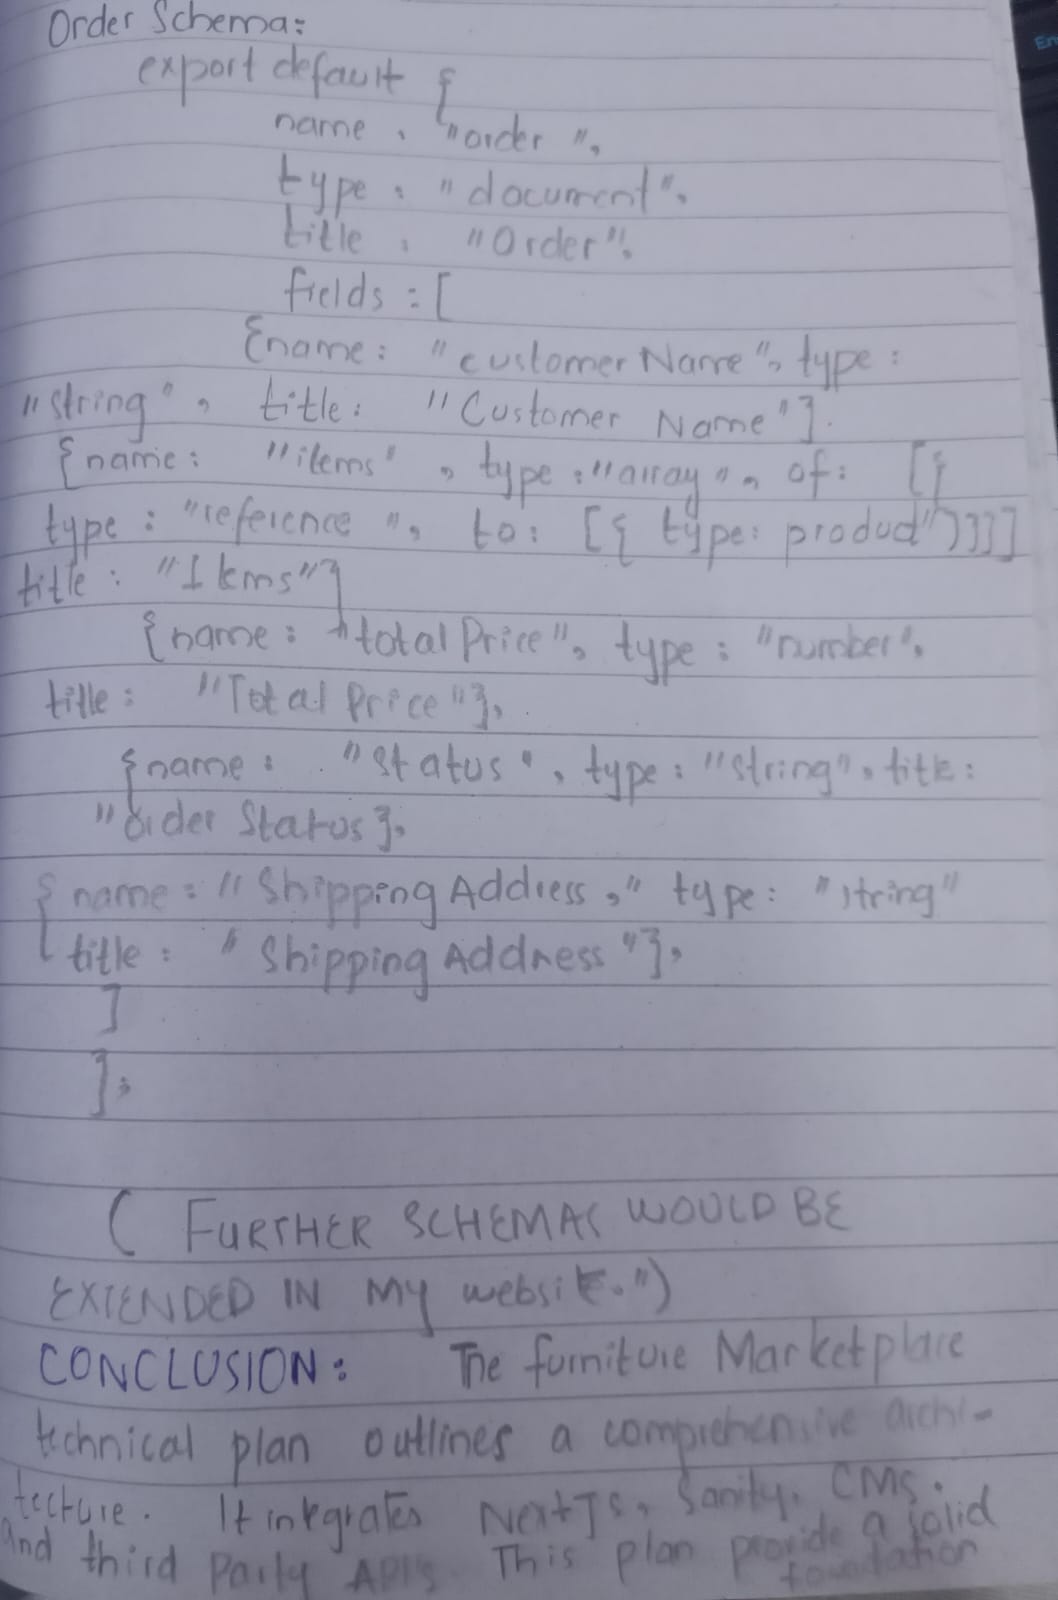 Order Schema:
export default {
name : "order",
type : "document",
title : "Order",
fields : [
{name: "customerName", type :
"string", title: "Customer Name"}.
{name: "items", type : "array", of: [{
type : "reference", to: [{ type: product")}]]
title : "Items"}
{name: "totalPrice", type : "number",
title : "Total Price"},
{name : "status", type : "string", title :
"Order Status},
{ name : "Shipping Address," type : "string"
title : "Shipping Address"},
]
];
( FURTHER SCHEMAS WOULD BE
EXTENDED IN My website.")
CONCLUSION: The furniture Marketplace
technical plan outlines a comprehensive archi-
tecture. It integrates NextJS, Sanity, CMS.
and third Party APIs. This plan provide a solid
foundation